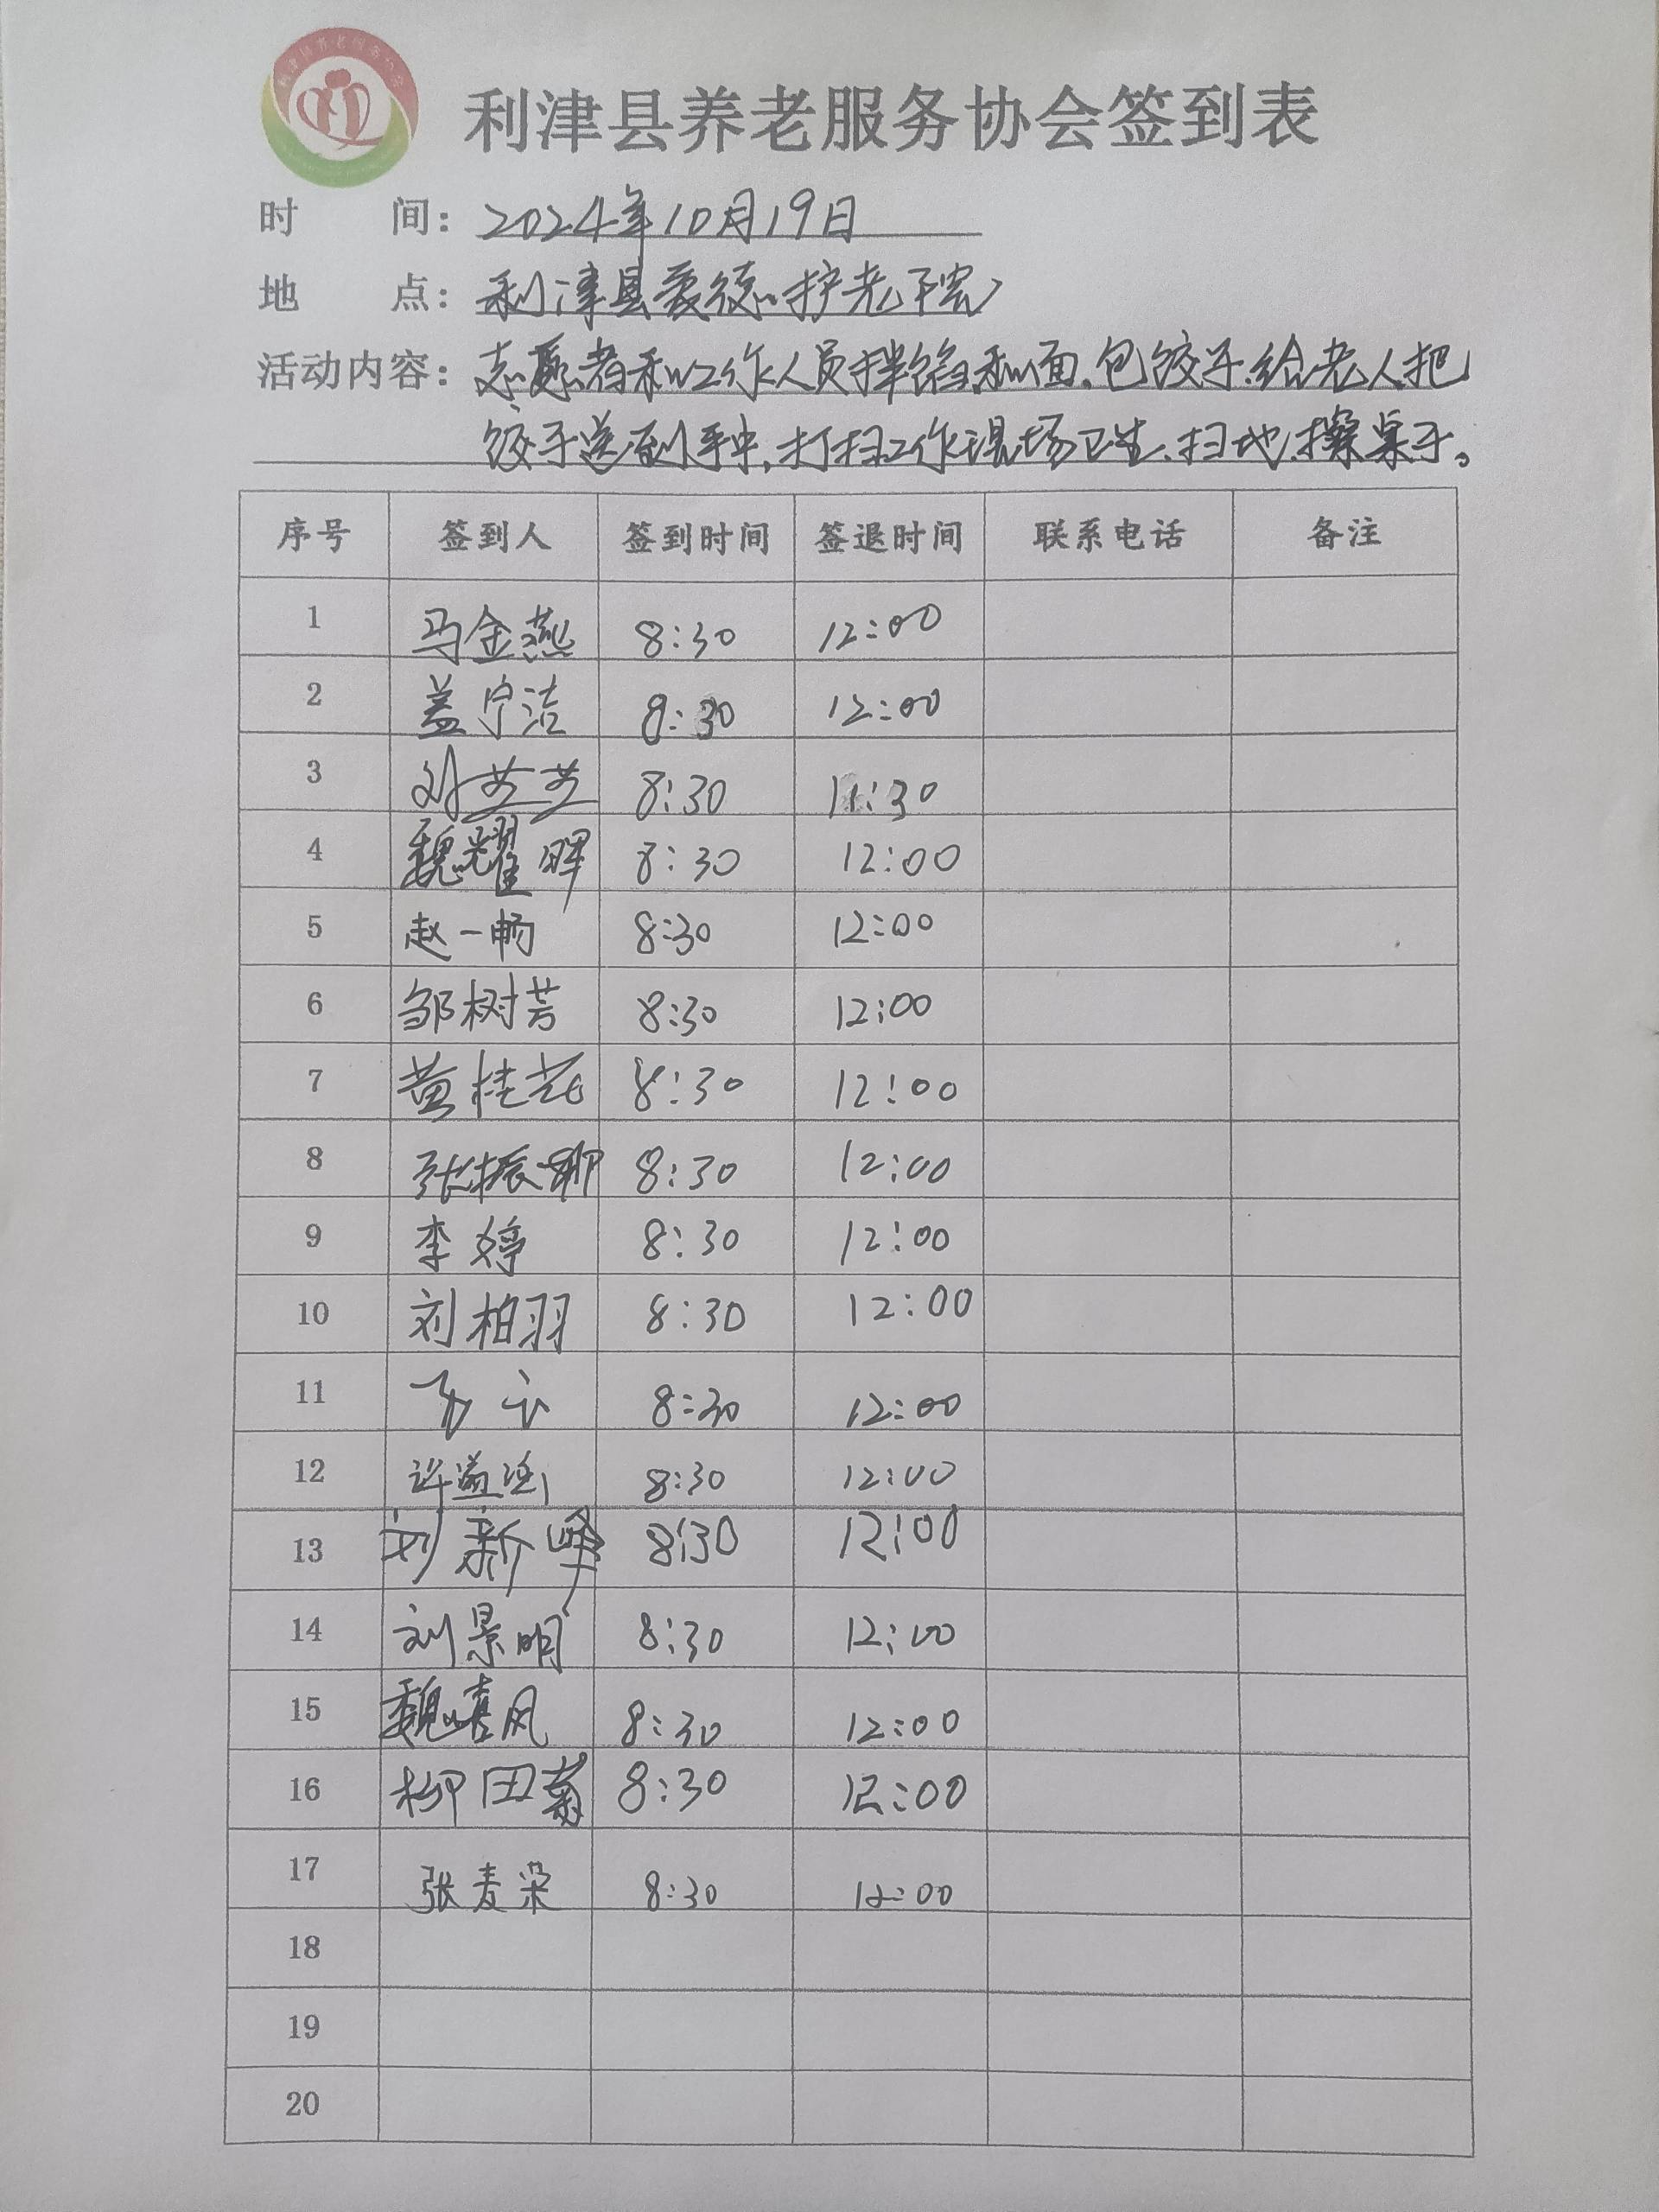 利津县养老服务协会签到表
时 间: 2024年10月19日
地 点: 利津县爱德护老院
活动内容: 志愿者和工作人员拌馅和面,包饺子给老人把
饺子送到手中,打扫工作现场卫生、扫地、擦桌子。
序号 签到人 签到时间 签退时间 联系电话 备注
1 马金燕 8:30 12:00
2 盖宁洁 8:30 12:00
3 刘 8:30 11:30
4 魏耀晖 8:30 12:00
5 赵一畅 8:30 12:00
6 邹树芳 8:30 12:00
7 黄桂花 8:30 12:00
8 张振 8:30 12:00
9 李婷 8:30 12:00
10 刘柏羽 8:30 12:00
11 8:30 12:00
12 许益 8:30 12:00
13 刘新峰 8:30 12:00
14 刘景明 8:30 12:00
15 魏嘻风 8:30 12:00
16 柳田菊 8:30 12:00
17 张麦朵 8:30 12:00
18
19
20